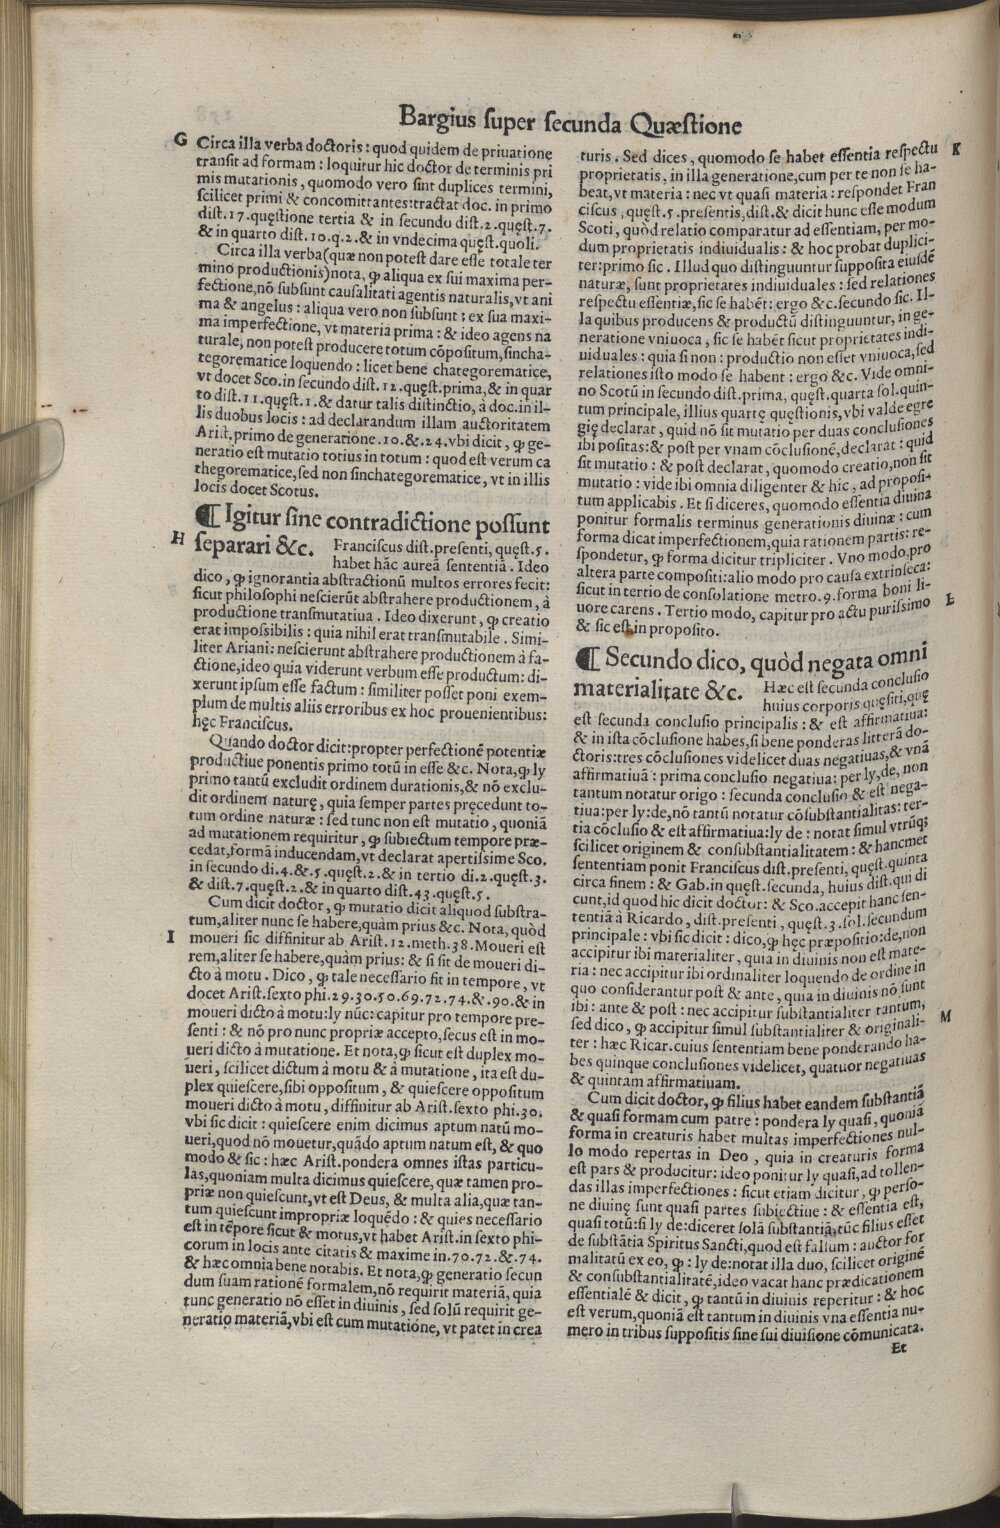 Bargius super secunda Quæstione
G Circa illa verba doctoris : quod quidem de priuatione
transit ad formam : loquitur hic doctor de terminis pri
mis mutationis, quomodo vero sint duplices termini,
scilicet primi & concomittantes:tractat doc. in primo
dist. 17. quęstione tertia & in secundo dist. 2. quęst. 7.
& in quarto dist. 10. q. 2. & in vndecima quęst. quoli.
Circa illa verba(quæ non potest dare esse totale ter
mino productionis)nota, ꝙ aliqua ex sui maxima per-
fectione,nō subsunt causalitati agentis naturalis,vt ani
ma & angelus : aliqua vero non subsunt : ex sua maxi-
ma imperfectione, vt materia prima : & ideo agens na
turale, non potest producere totum cōpositum,sincha-
tegorematice loquendo : licet bene chategorematice,
vt docet Sco. in secundo dist. 12. quęst. prima, & in quar
to dist. 11. quęst. 1. & datur talis distinctio, à doc. in il-
lis duobus locis : ad declarandum illam auctoritatem
Arist. primo de generatione. 10. & . 24. vbi dicit, ꝙ ge-
neratio est mutatio totius in totum : quod est verum ca
thegorematice,sed non sinchategorematice, vt in illis
locis docet Scotus.
¶ Igitur sine contradictione possunt
H separari &c. Franciscus dist. presenti, quęst. 5.
habet hāc aureā sententiā . Ideo
dico, ꝙ ignorantia abstractionū multos errores fecit:
sicut philosophi nescierūt abstrahere productionem, à
productione transmutatiua . Ideo dixerunt, ꝙ creatio
erat impossibilis : quia nihil erat transmutabile . Simi-
liter Ariani: nescierunt abstrahere productionem à fa-
ctione,ideo quia viderunt verbum esse productum: di-
xerunt ipsum esse factum : similiter posset poni exem-
plum de multis aliis erroribus ex hoc prouenientibus:
hęc Franciscus.
Quando doctor dicit:propter perfectionē potentiæ
productiue ponentis primo totū in esse &c. Nota,ꝙ ly
primo tantū excludit ordinem durationis,& nō exclu-
dit ordinem naturę, quia semper partes pręcedunt to-
tum ordine naturæ : sed tunc non est mutatio, quoniā
ad mutationem requiritur, ꝙ subiectum tempore præ-
cedat,formā inducendam,vt declarat apertissime Sco.
in secundo di. 4. & . 5. quęst. 2. & in tertio di. 2. quęst. 3.
& dist. 7. quęst. 2. & in quarto dist. 43. quęst. 5.
Cum dicit doctor, ꝙ mutatio dicit aliquod substra-
tum,aliter nunc se habere,quàm prius &c. Nota, quòd
I moueri sic diffinitur ab Arist. 12. meth. 38. Moueri est
rem,aliter se habere,quàm prius: & si sit de moueri di-
cto à motu . Dico, ꝙ tale necessario fit in tempore, vt
docet Arist.sexto phi. 29. 30. 50. 69. 72. 74. & . 90. & in
moueri dicto à motu:ly nūc: capitur pro tempore pre-
senti : & nō pro nunc propriæ accepto,secus est in mo-
ueri dicto à mutatione. Et nota,ꝙ sicut est duplex mo-
ueri, scilicet dictum à motu & à mutatione, ita est du-
plex quiescere,sibi oppositum, & quiescere oppositum
moueri dicto à motu, diffinitur ab Arist.sexto phi. 30.
vbi sic dicit : quiescere enim dicimus aptum natū mo-
ueri,quod nō mouetur,quādo aptum natum est, & quo
modo & sic : hæc Arist. pondera omnes istas particu-
las,quoniam multa dicimus quiescere, quæ tamen pro-
priæ non quiescunt,vt est Deus, & multa alia,quæ tan-
tum quiescunt impropriæ loquēdo : & quies necessario
est in tēpore sicut & motus,vt habet Arist. in sexto phi-
corum in locis ante citatis & maxime in. 70. 72. & . 74.
& hæc omnia bene notabis. Et nota,ꝙ generatio secun
dum suam rationē formalem,nō requirit materiā, quia
tunc generatio nō esset in diuinis, sed solū requirit ge-
neratio materiā,vbi est cum mutatióne, vt patet in crea
turis . Sed dices, quomodo se habet essentia respectu K
proprietatis, in illa generatione,cum per te non se ha-
beat,vt materia : nec vt quasi materia : respondet Fran
ciscus, quęst. 5. presentis,dist. & dicit hunc esse modum
Scoti, quòd relatio comparatur ad essentiam, per mo-
dum proprietatis indiuidualis : & hoc probat duplici-
ter:primo sic . Illud quo distinguuntur supposita eiusdē
naturæ, sunt proprietates indiuiduales : sed relationes
respectu essentiæ,sic se habēt: ergo &c. secundo sic. Il-
la quibus producens & productū distinguuntur, in ge-
neratione vniuoca, sic se habēt sicut proprietates indi-
uiduales : quia si non : productio non esset vniuoca,sed
relationes isto modo se habent : ergo &c. Vide omni-
no Scotū in secundo dist. prima, quęst. quarta sol. quin-
tum principale, illius quartę quęstionis,vbi valde egre
gię declarat, quid nō sit mutatio per duas conclusiones
ibi positas:& post per vnam cōclusionē,declarat : quid
sit mutatio : & post declarat, quomodo creatio,non sit
mutatio : vide ibi omnia diligenter & hic, ad proposi-
tum applicabis . Et si diceres, quomodo essentia diuina
ponitur formalis terminus generationis diuinæ : cum
forma dicat imperfectionem,quia rationem partis: re-
spondetur, ꝙ forma dicitur tripliciter . Vno modo,pro
altera parte compositi:alio modo pro causa extrinseca:
sicut in tertio de consolatione metro. 9. forma boni li-
uore carens . Tertio modo, capitur pro actu purissimo L
& sic est in proposito.
¶ Secundo dico, quòd negata omni
materialitate &c. Hæc est secunda conclusio
huius corporis quęsiti,quę
est secunda conclusio principalis : & est affirmatiua:
& in ista cōclusione habes,si bene ponderas litterā do-
ctoris:tres cōclusiones videlicet duas negatiuas,& vnā
affirmatiuā : prima conclusio negatiua: per ly,de, non
tantum notatur origo : secunda conclusio & est nega-
tiua:per ly:de,nō tantū notatur cōsubstantialitas: ter-
tia cōclusio & est affirmatiua:ly de : notat simul vtrūq;
scilicet originem & consubstantialitatem : & hancmet
sententiam ponit Franciscus dist. presenti, quęst. quinta
circa finem : & Gab. in quęst. secunda, huius dist. qui di
cunt,id quod hic dicit doctor: & Sco. accepit hanc sen-
tentiā à Ricardo, dist. presenti, quęst. 3. sol. secundum
principale : vbi sic dicit : dico,ꝙ hęc præpositio:de,non
accipitur ibi materialiter, quia in diuinis non est mate-
ria : nec accipitur ibi ordinaliter loquendo de ordine in
quo considerantur post & ante, quia in diuinis nō sunt
ibi : ante & post : nec accipitur substantialiter tantum, M
sed dico, ꝙ accipitur simul substantialiter & originali-
ter : hæc Ricar. cuius sententiam bene ponderando ha-
bes quinque conclusiones videlicet, quatuor negatiuas
& quintam affirmatiuam.
Cum dicit doctor, ꝙ filius habet eandem substantiā
& quasi formam cum patre : pondera ly quasi, quoniā
forma in creaturis habet multas imperfectiones nul-
lo modo repertas in Deo , quia in creaturis forma
est pars & producitur: ideo ponitur ly quasi,ad tollen-
das illas imperfectiones : sicut etiam dicitur, ꝙ perso-
ne diuinę sunt quasi partes subiectiue : & essentia est,
quasi totū: si ly de:diceret solā substantiā,tūc filius esset
de substātia Spiritus Sancti,quod est falsum : auctor for
malitatū ex eo, ꝙ : ly de:notat illa duo, scilicet originē
& consubstantialitatē,ideo vacat hanc prædicationem
essentialē & dicit, ꝙ tantū in diuinis reperitur : & hoc
est verum,quoniā est tantum in diuinis vna essentia nu-
mero in tribus suppositis sine sui diuisione cōmunicata.
Et